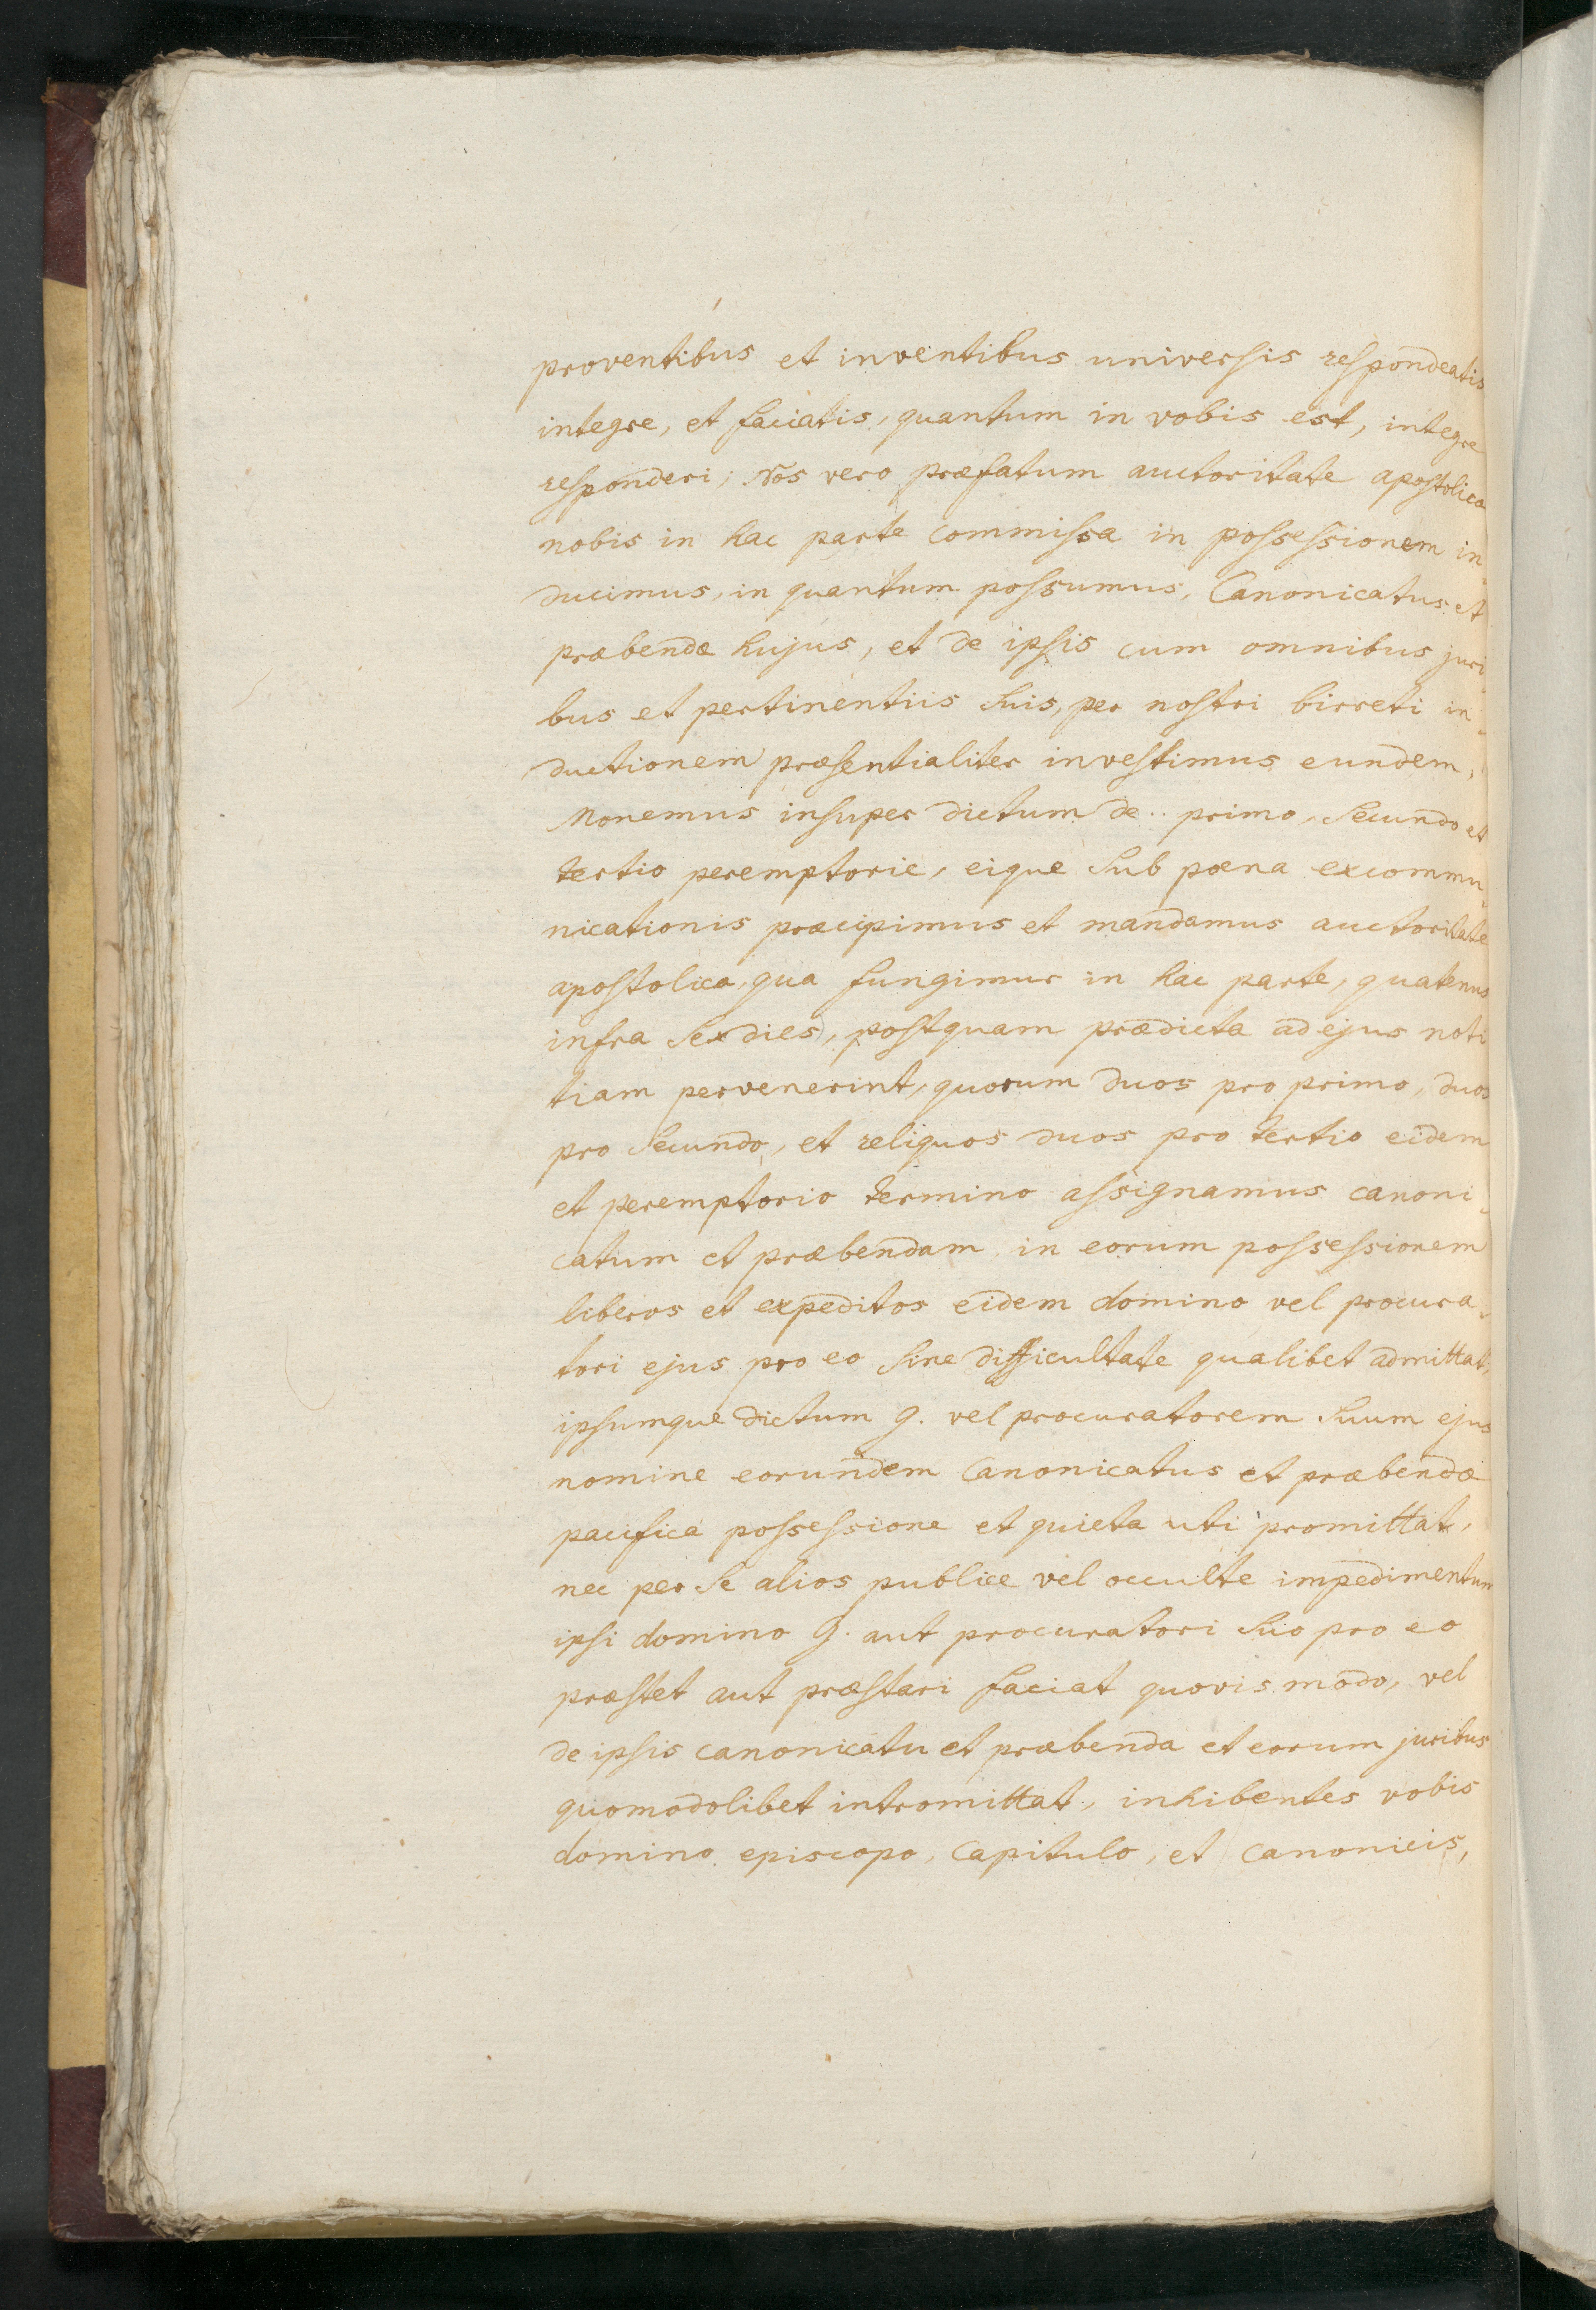 proventibus et inventibus universis respondeatis
integre, et faciatis, quantum in vobis est, integre
responderi; Nos vero præfatum auctoritate apostolica
nobis in hac parte commissa in possessionem in-
ducimus, in quantum possumus, Canonicatus et
præbendæ hujus, et de ipsis cum omnibus juri-
bus et pertinentiis suis, per nostri birreti in-
ductionem præsentialiter investimus eundem,
Monemus insuper dictum de .. primo, secundo et
tertio peremptorie, eique sub pœna excommu-
nicationis præcipimus et mandamus auctoritate
apostolica, qua fungimur in hac parte, quatenus
infra sex dies, postquam prædicta ad ejus noti
tiam pervenerint, quorum duos pro primo, duos
pro secundo, et reliquos duos pro tertio eidem
et peremptorio termino assignamus canoni-
catum et præbendam in eorum possessionem
liberos et expeditos eidem domino vel procura-
tori ejus pro eo sine difficultate qualibet admittat,
ipsumque dictum G. vel procuratorem suum ejus
nomine eorundem Canonicatus et præbendæ
pacifica possessione et quieta uti promittat,
nec per se alios publice vel occulte impedimentum
ipsi domino G. aut procuratori suo pro eo
præstet aut præstari faciat quovis modo, vel
de ipsis canonicatu et præbenda et eorum juribus
quomodolibet intromittat, inhibentes vobis
domino episcopo, Capitulo, et Canonicis,